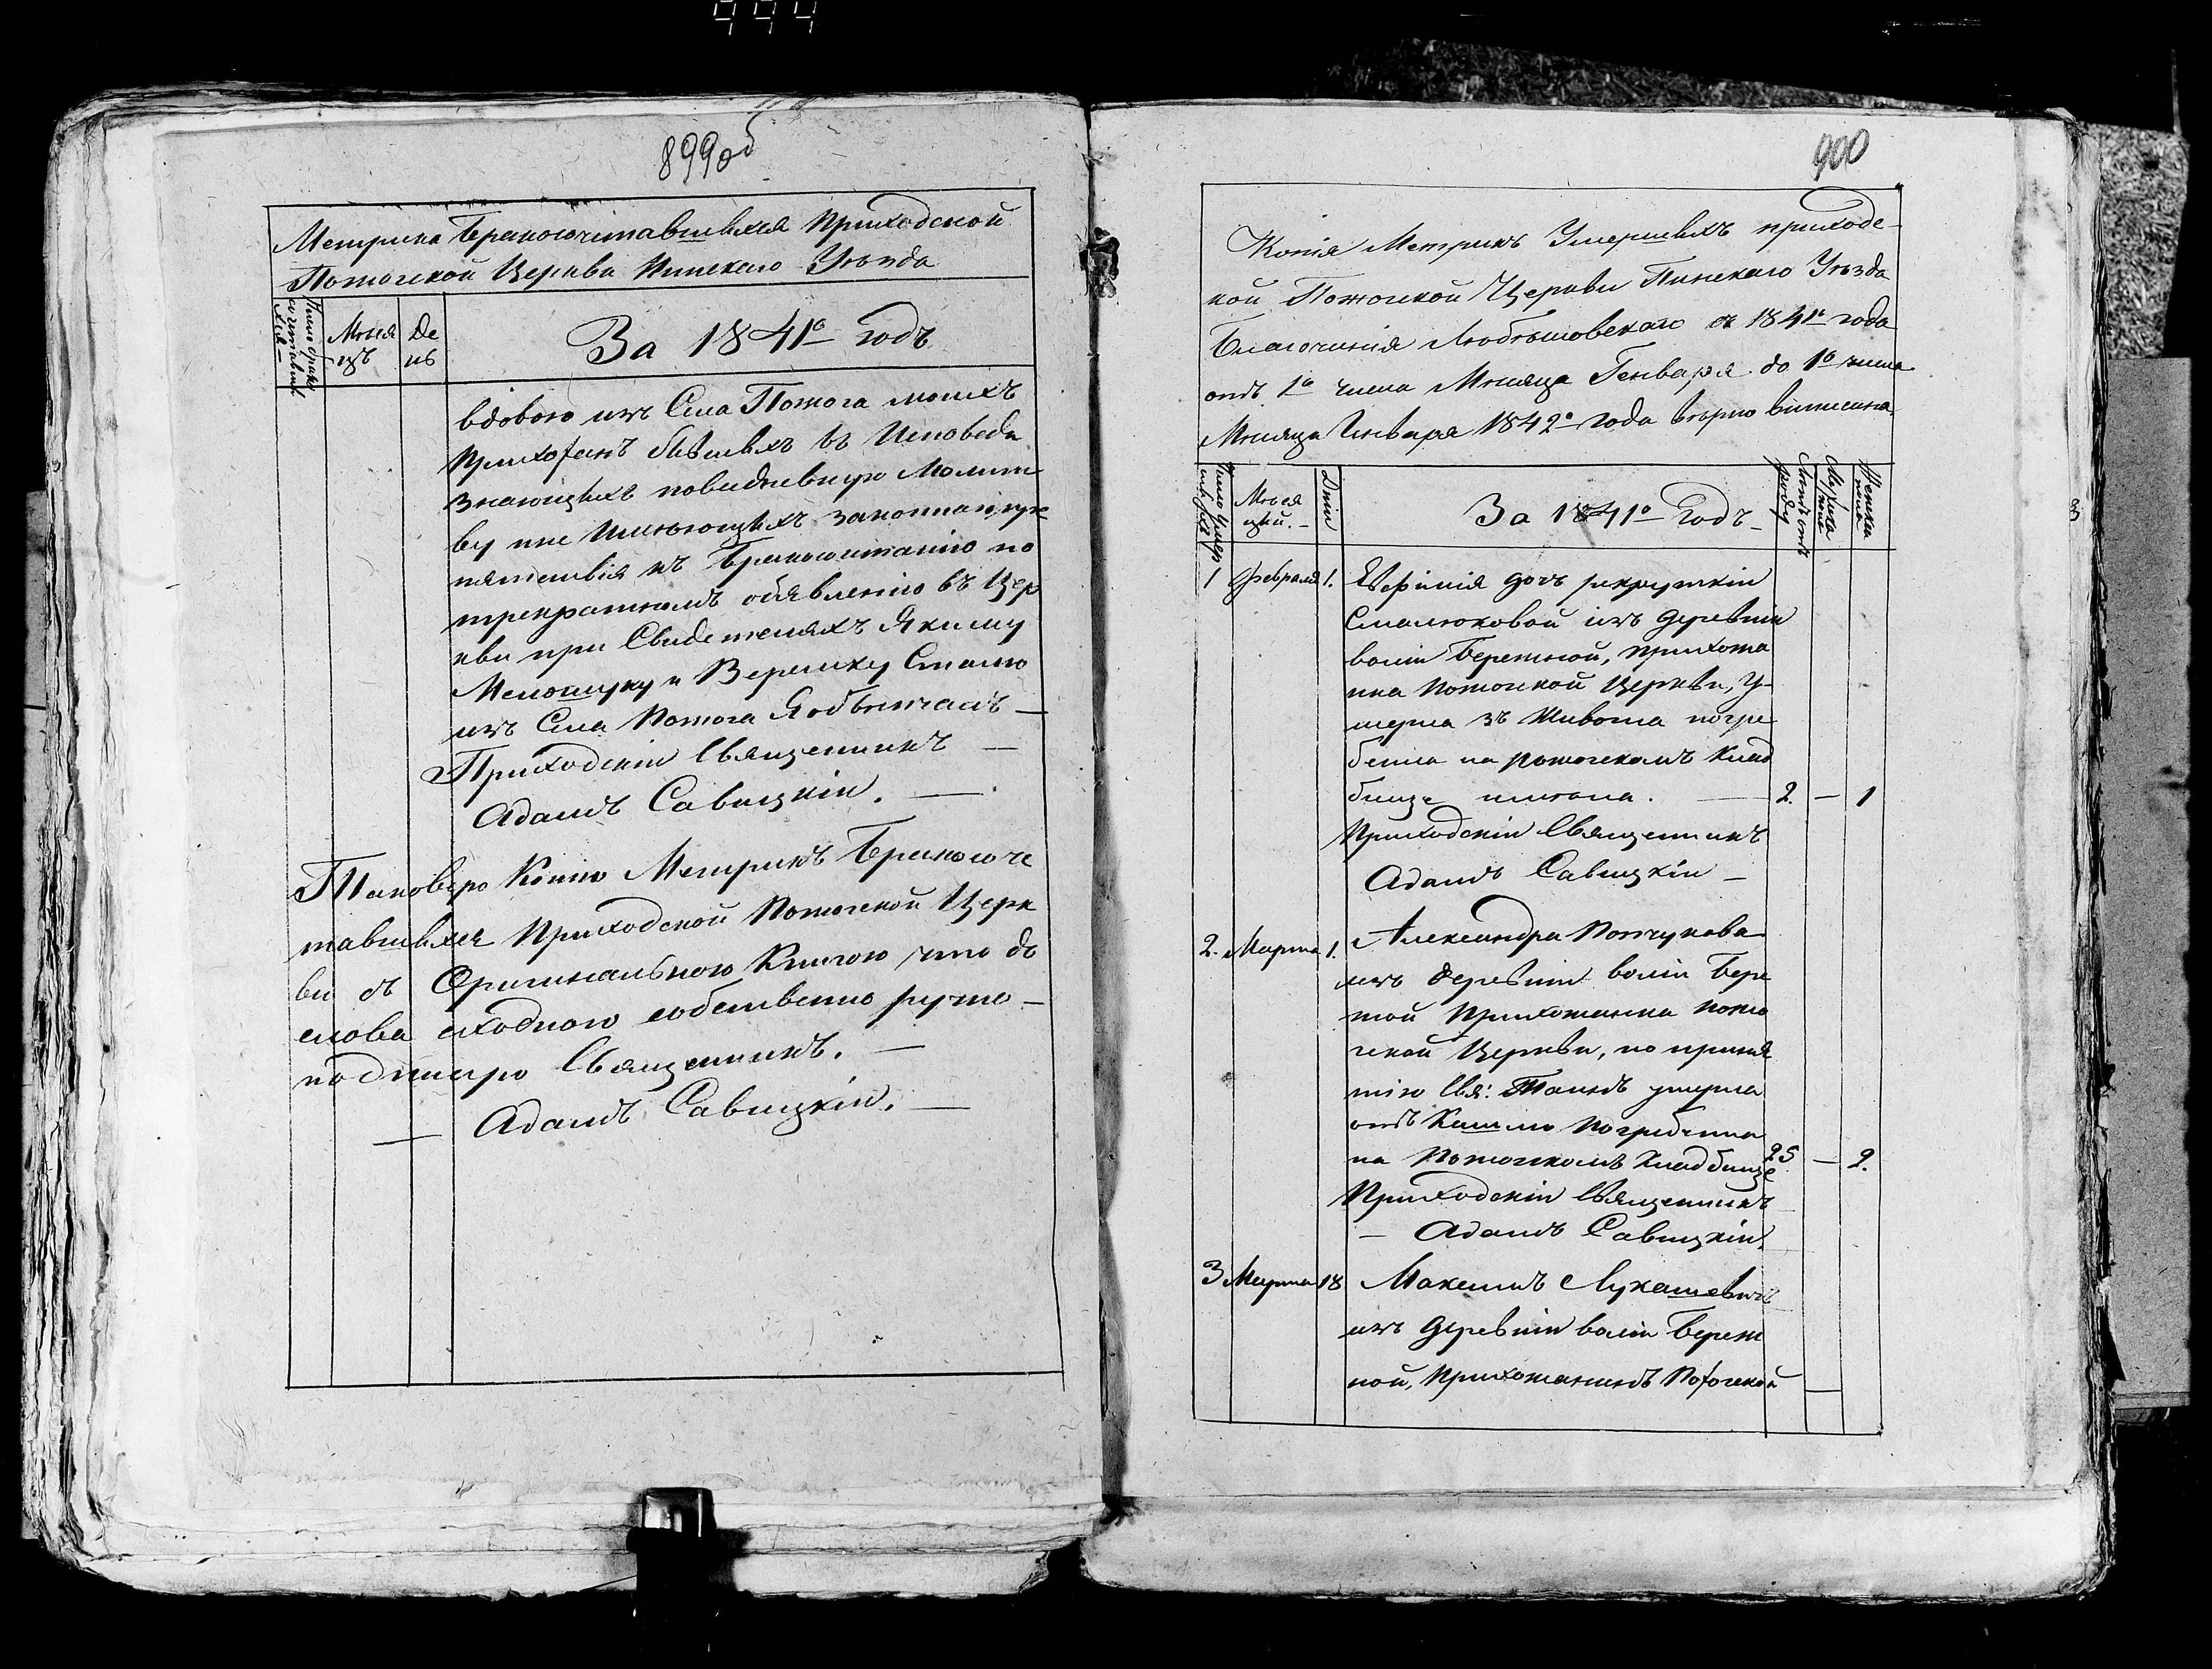 444
899об
Метрика Бракосочитавшихся Приходской
Пожогской Церкви Пинскаго Уѣзда
Число брако
сочетавших
ся
Мѣся
цъ
Де
нь
За 1841о Годъ
вдовою изъ Села Пожога моихъ
Прихожанъ бывшихъ въ Исповеди
знающихъ повседневную Молит
ву нне Имѣющихъ законнаго пре
пятствія къ Бракосочетанію по
трекратномъ объявленію въ Цер
кви при Свидетеляхъ Якиму
и Веремку
изъ Села Пожога Я обвѣнчалъ —
Приходскій Священникъ —
Адамъ Савицкій. —
Таковую Копію Метрикъ Бракосоче
тавшихся Приходской Пожогской Церк
ви съ Оригинальною Книгою что до
слова сходною собственно ручно —
подпишую Священникъ. —
— Адамъ Савицкій. —
900
Копія Метрикъ Умершихъ приходс-
кой Пожогской Церкви Пинскаго Уѣзда
Благочинія Любѣшовскаго съ 1841о года
отъ 1о числа Мѣсяца Генваря до 1о числа
Мѣсяца Генваря 1842о Года вѣрно виписана
Число умер
шихъ
Мѣся
цы. –
Дни
За 1841о Годъ –
Лѣтъ отъ
роду
Мужеска
пола
Женска
пола
1 Февраля 1. Евфимія дочъ рекрутки
Смалюховой изъ деревни
воли Бережной, прихожа
нка Пожогской Церкви, У-
мерла зъ Живота погре
бена на Пожогскомъ клад
бище — 2. — 1
Приходскій Священникъ
Адамъ Савицкій —
2. Марта 1. Александра
изъ деревни воли Бере
жной Прихожанка Пожо
гской Церкви, по приня
тію Свя: Таинъ умерла
отъ Кашлю Погребена
на Пожогскомъ кладбище 25 — 2.
Приходскій Священникъ
— Адамъ Савицкій.
3 Марта 18 Максимъ Лукашевичъ
изъ деревни воли Береж
ной, Прихожанинъ Пожогской